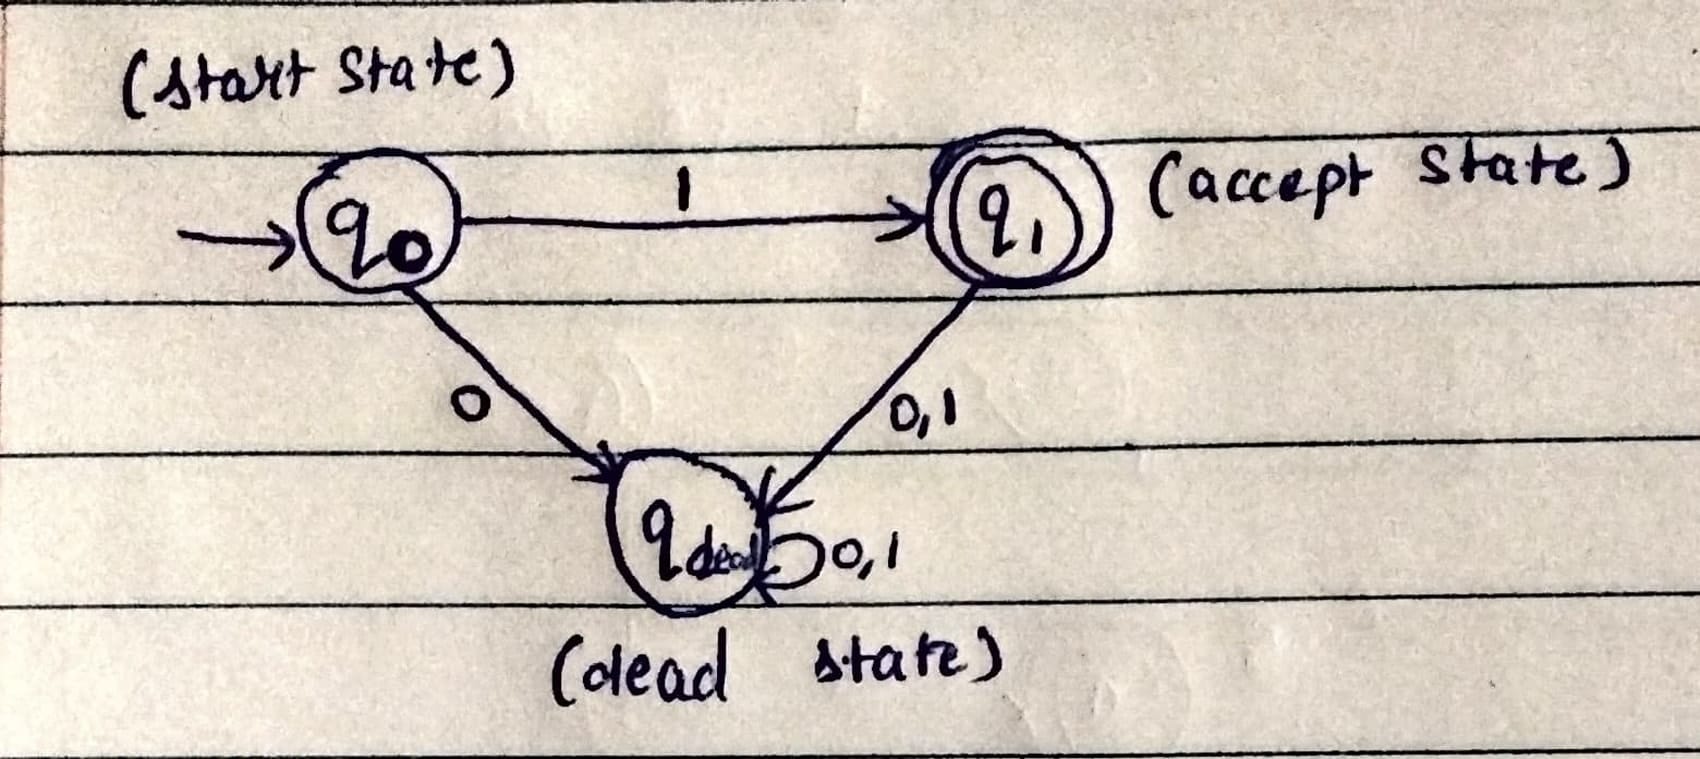 (start state)
1
q0
q1
(accept state)
0
0,1
qdead
0,1
(dead state)